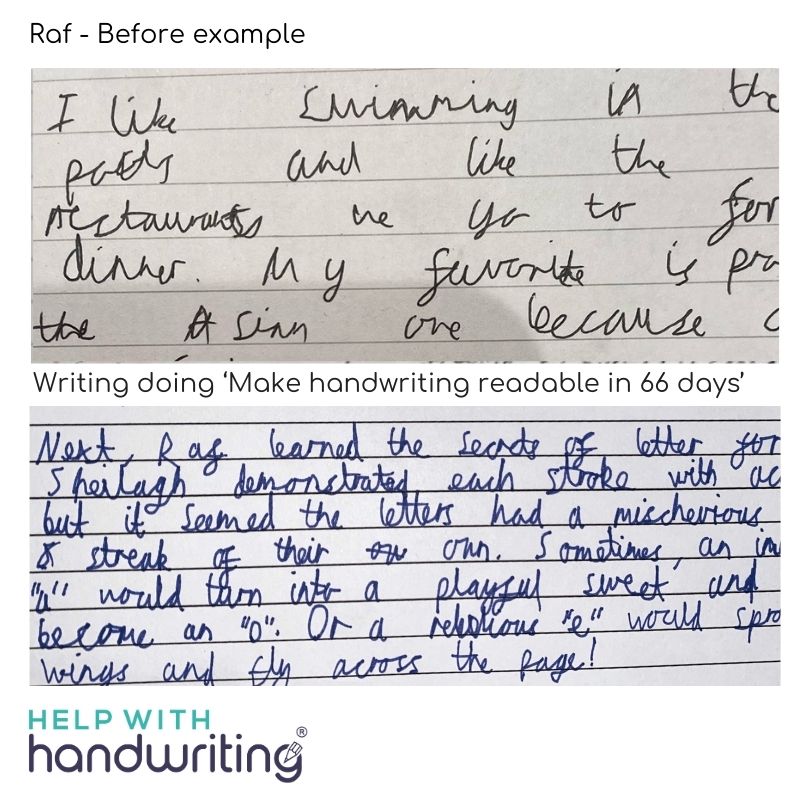 Raf - Before example
I like Swimming in the
and like the
restaurants we go to for
dinner. My favorite is pro
the Asian one because
Writing doing ‘Make handwriting readable in 66 days’
Next, Raf learned the secrets of letter for
Sheilagh demonstrated each stroke with ac
but it seemed the letters had a mischevious
streak of their own. Sometimes, an im
"a" would turn into a playful sweet and
become an "o". Or a rebelious "e" would spro
wings and fly across the page!
HELP WITH
handwriting®